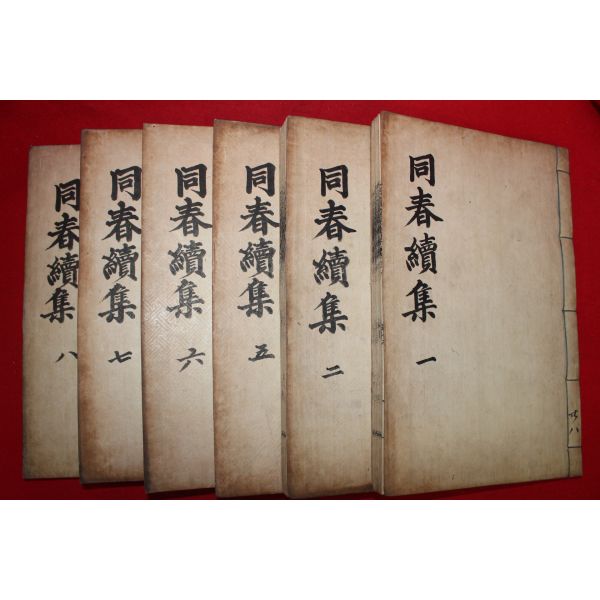 同春續集 一
共八
同春續集 二
同春續集 五
同春續集 六
同春續集 七
同春續集 八